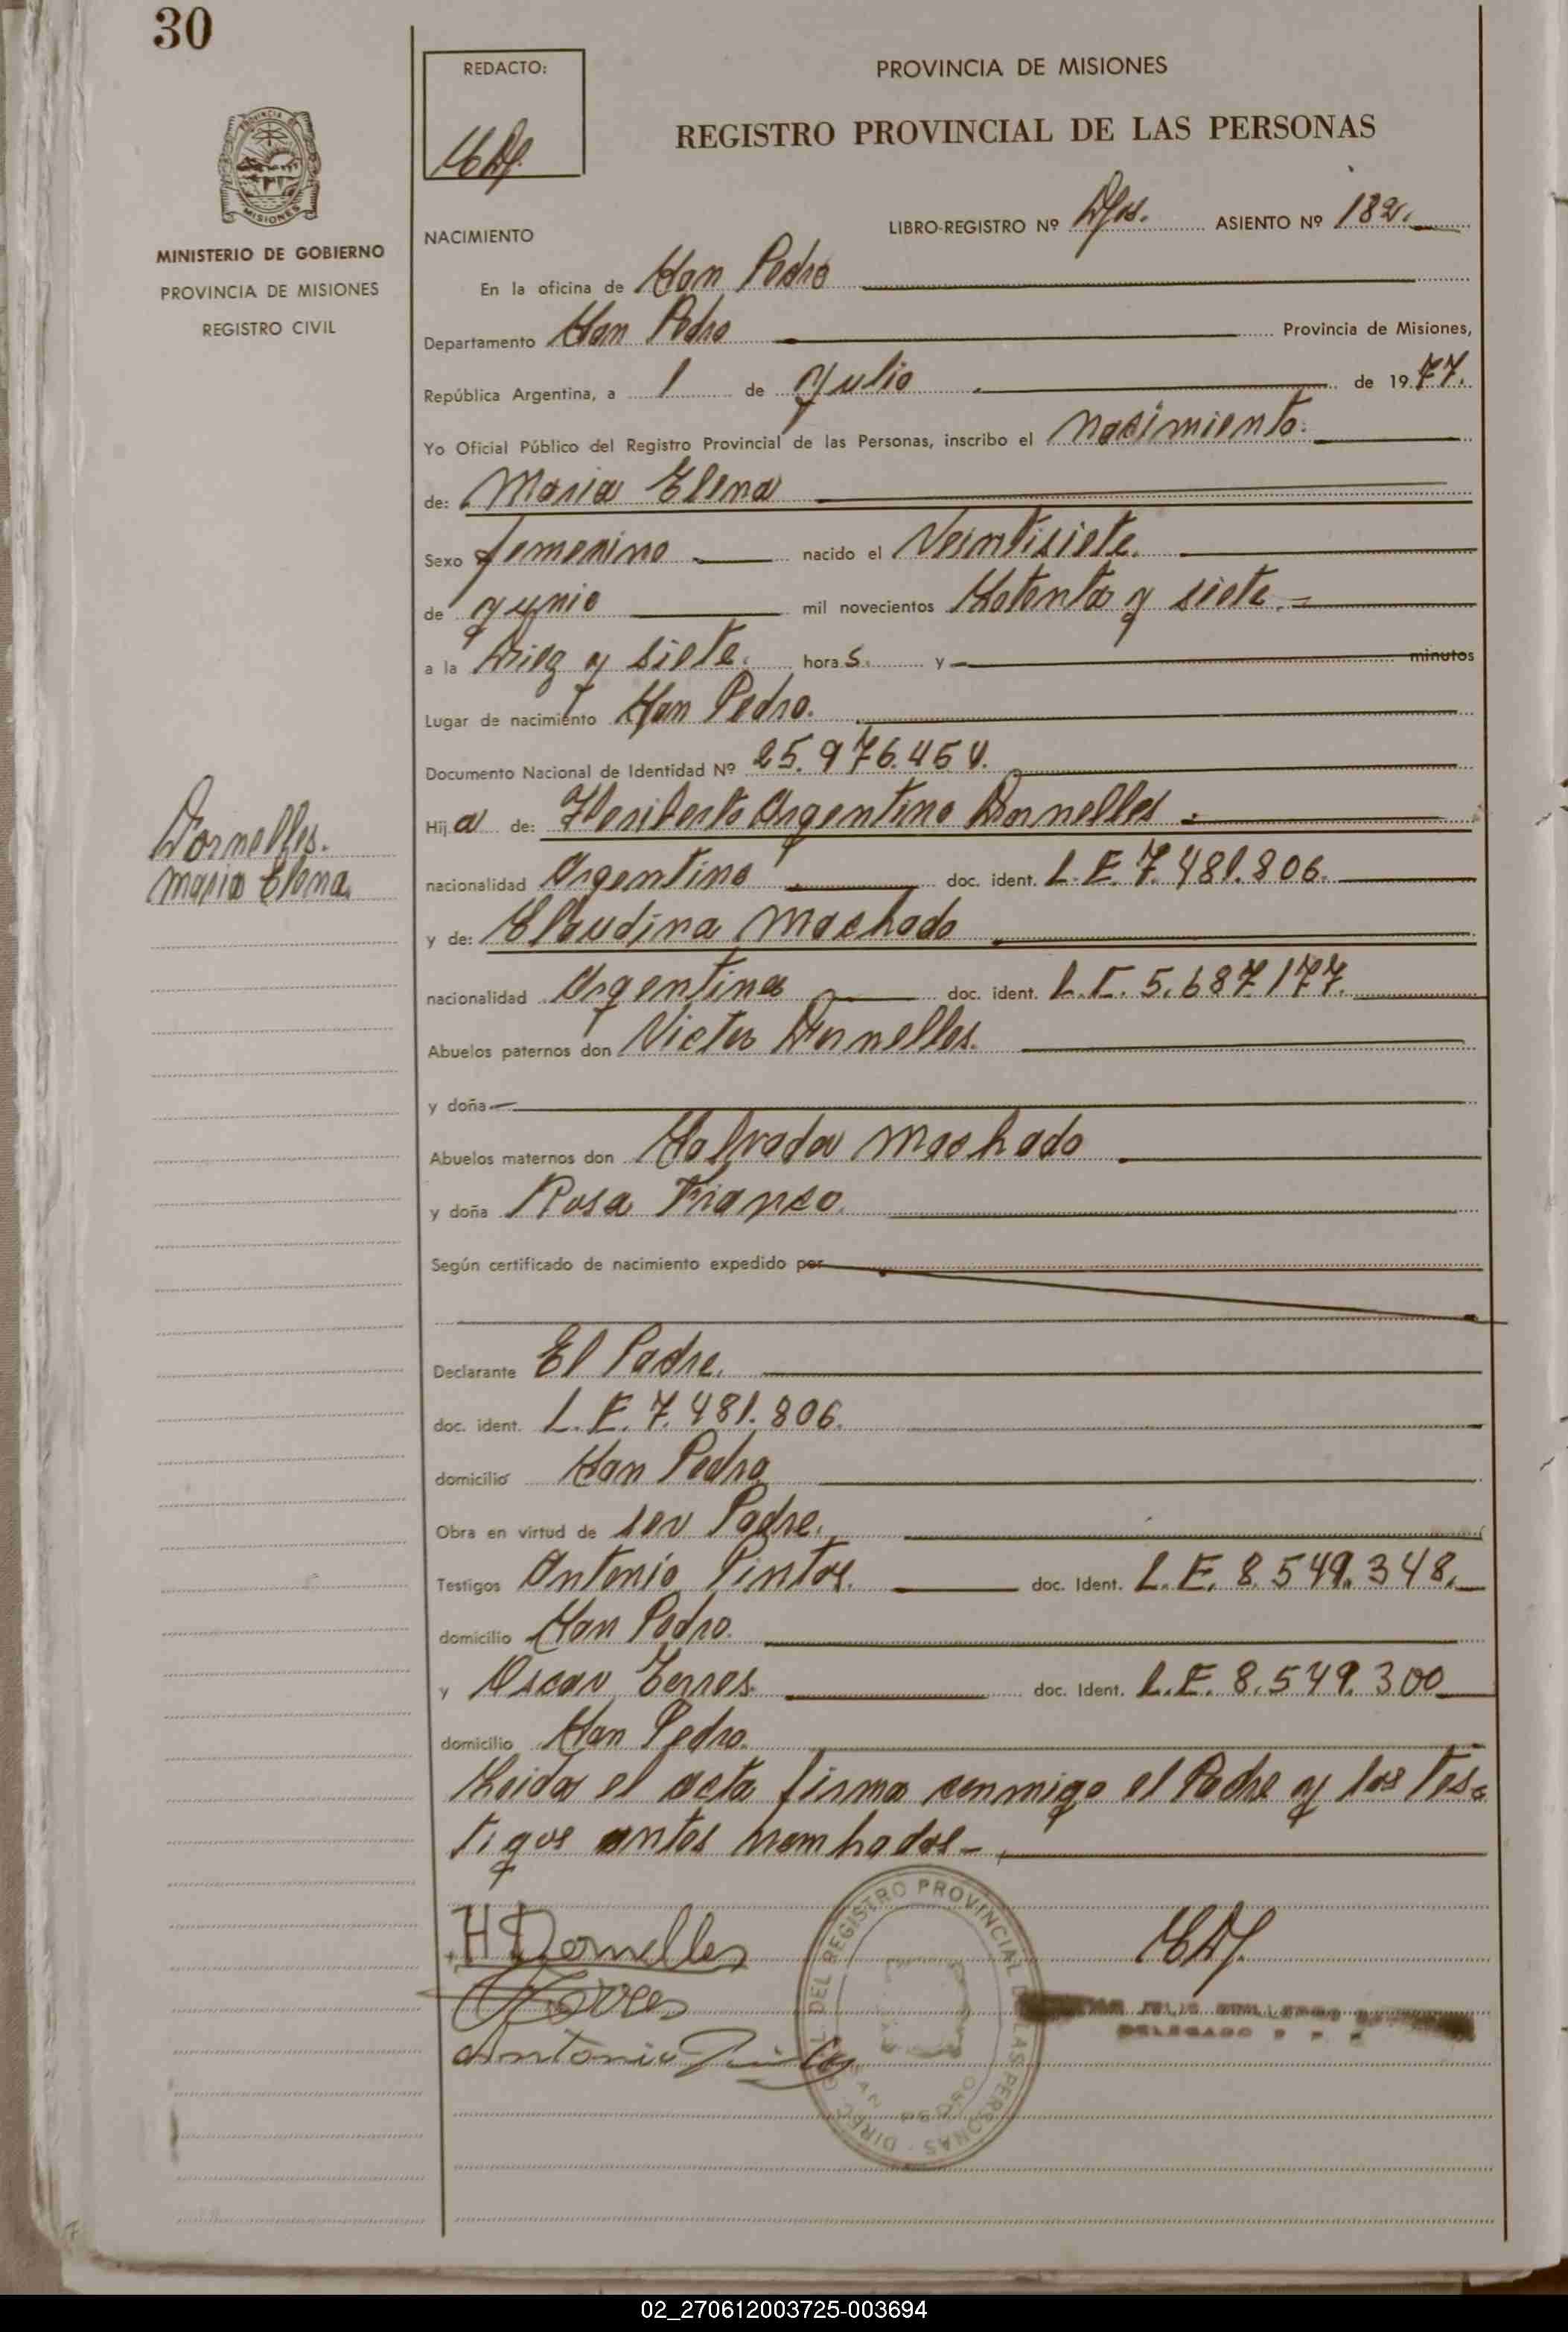 30
REDACTO:
PROVINCIA DE MISIONES
REGISTRO PROVINCIAL DE LAS PERSONAS
PROVINCIA DE
MISIONES
MINISTERIO DE GOBIERNO
PROVINCIA DE MISIONES
REGISTRO CIVIL
LIBRO-REGISTRO Nº Dos. ASIENTO Nº 182.
NACIMIENTO
En la oficina de San Pedro
Departamento San Pedro Provincia de Misiones,
República Argentina, a 1 de Julio de 1977.
Yo Oficial Público del Registro Provincial de las Personas, inscribo el nacimiento.
de: Maria Elena
Sexo femenino nacido el Veintisiete.
de junio mil novecientos Setenta y siete.
a la Diez y siete. horas. y minutos
Lugar de nacimiento San Pedro.
Documento Nacional de Identidad Nº 25.976.454.
Dornelles.
Maria Elena
Hija de: Heriberto Argentino Dornelles
nacionalidad Argentino doc. ident. L.E. 7.481.806.
y de: Claudina Machado
nacionalidad Argentina doc. ident. L.C. 5.687.177.
Abuelos paternos don Victor Dornelles.
y doña
Abuelos maternos don Salvador Machado
y doña Rosa Franco.
Según certificado de nacimiento expedido por
Declarante El Padre.
doc. ident. L.E. 7.481.806.
domicilio San Pedro
Obra en virtud de ser Padre.
Testigos Antonio Pintos. doc. Ident. L.E. 8.549.348.
domicilio San Pedro.
y Oscar Torres. doc. Ident. L.E. 8.549.300
domicilio San Pedro.
Leida el acta firma conmigo el Padre y los Tes-
tigos antes nombrados-
H Dornelles
Torres
Antonio Pintos
DIREC. GRAL. DEL REGISTRO PROVINCIAL DE LAS PERSONAS
SAN PEDRO
JULIO
DELEGADO
02_270612003725-003694